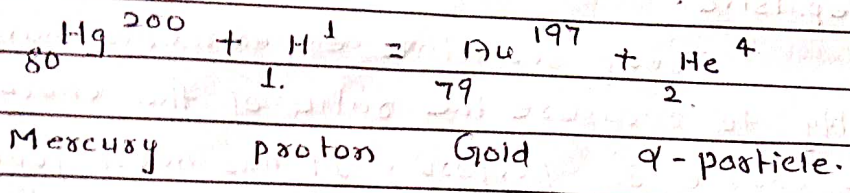 ₈₀Hg²⁰⁰ + ₁H¹ = ₇₉Au¹⁹⁷ + ₂He⁴
Mercury proton Gold α-particle.